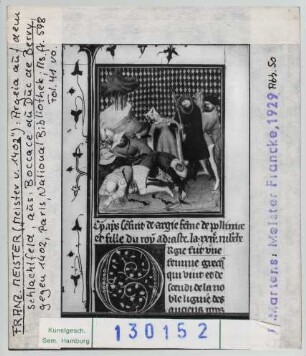 FRANZ. MEISTER (Meister v. 1402"): Argeia auf dem
Schlachtfeld, aus: Boccace du Duc de Berry,
gegen 1402, Paris, National Bibliothek, Ms. fr. 598
Fol. 41 vo
Cy aps sensuit de argie feme de
et fille du roy adraste. la xxvii.
Rgie fut une
femme grecq
qui vint et de
scendi de la no
ble lignie des
anciens roys
Martens: Meister Francke, 1929 Abb. 50
Kunstgesch.
Sem. Hamburg
130152